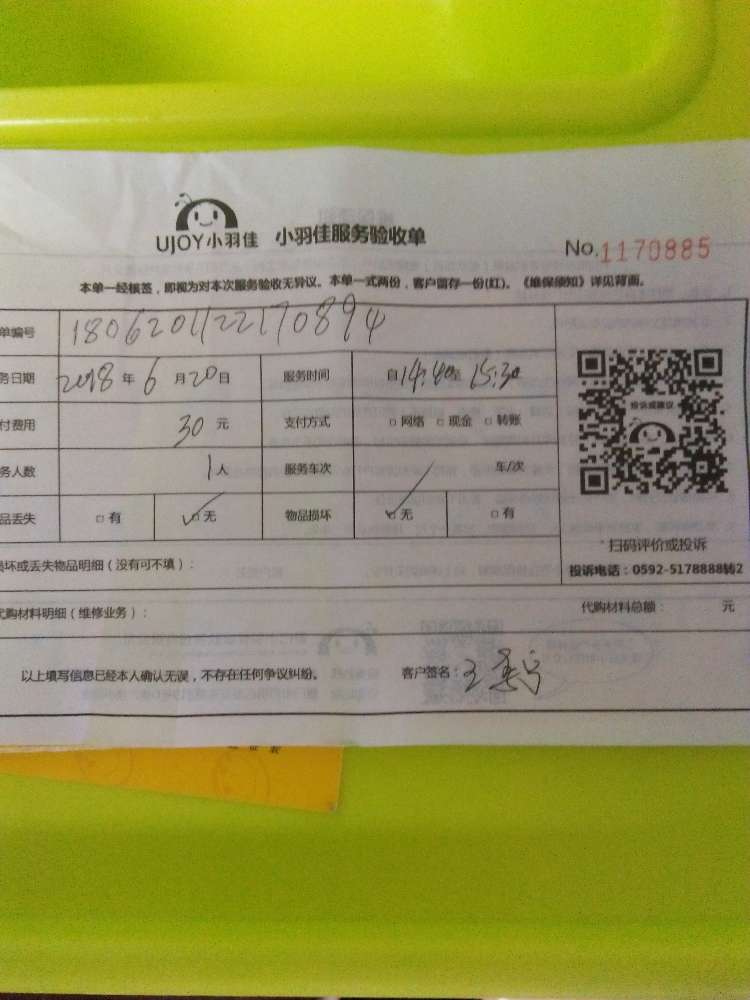 UJOY小羽佳 小羽佳服务验收单 No.1170885
本单一经核签，即视为对本次服务验收无异议。本单一式两份，客户留存一份(红)。《维保须知》详见背面。
单编号 1806201122170894
务日期 2018 年 6 月 20 日 服务时间 自 14:40 至 15:30
付费用 30 元 支付方式 □ 网络 □ 现金 □ 转账
务人数 1 人 服务车次 车/次
品丢失 □ 有 □ 无 物品损坏 □ 无 □ 有
投诉或建议
扫码评价或投诉
投诉电话：0592-5178888转2
损坏或丢失物品明细（没有可不填）：
代购材料明细（维修业务）： 代购材料总额： 元
以上填写信息已经本人确认无误，不存在任何争议纠纷。 客户签名：王